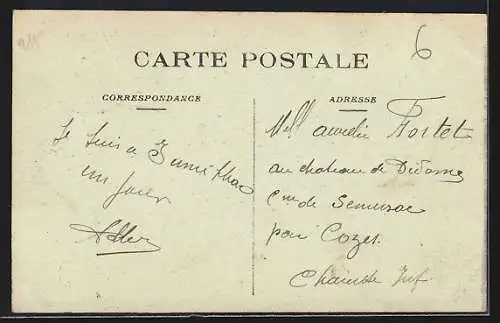 24
6
CARTE POSTALE
CORRESPONDANCE
ADRESSE
Je suis a
un jour
Mell aurelie Fortet
au chateau de Didonne
Cne de Semussac
par Cozes
Charente Inf